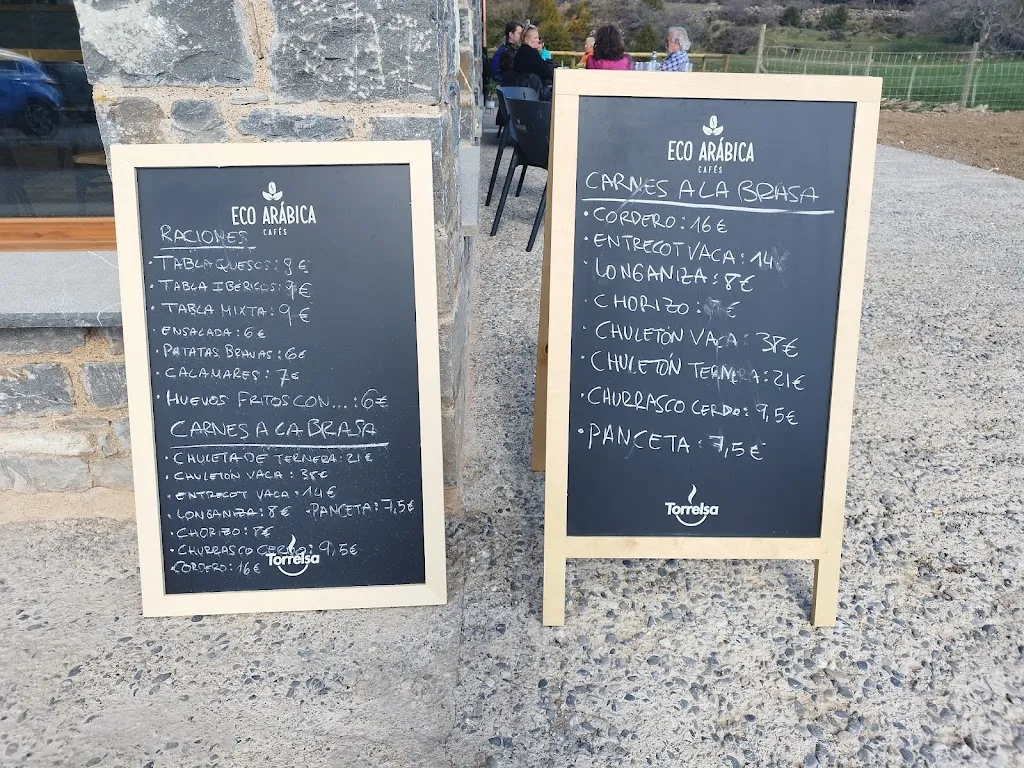 ECO ARÁBICA
CAFÉS
RACIONES
· TABLA QUESOS: 9€
· TABLA IBERICOS: 9€
· TABLA MIXTA: 9€
· ENSALADA: 6€
· PATATAS BRAVAS: 6€
· CALAMARES: 7€
· HUEVOS FRITOS CON...: 6€
CARNES A LA BRASA
· CHULETA DE TERNERA: 21€
· CHULETÓN VACA: 38€
· ENTRECOT VACA: 14€
· LONGANIZA: 8€ · PANCETA: 7,5€
· CHORIZO: 8€
· CHURRASCO CERDO: 9,5€
· CORDERO: 16€
Torrelsa
ECO ARÁBICA
CAFÉS
CARNES A LA BRASA
· CORDERO: 16€
· ENTRECOT VACA: 14
· LONGANIZA: 8€
· CHORIZO: €
· CHULETÓN VACA: 38€
· CHULETÓN TERNERA: 21€
· CHURRASCO CERDO: 9,5€
· PANCETA: 7,5€
Torrelsa